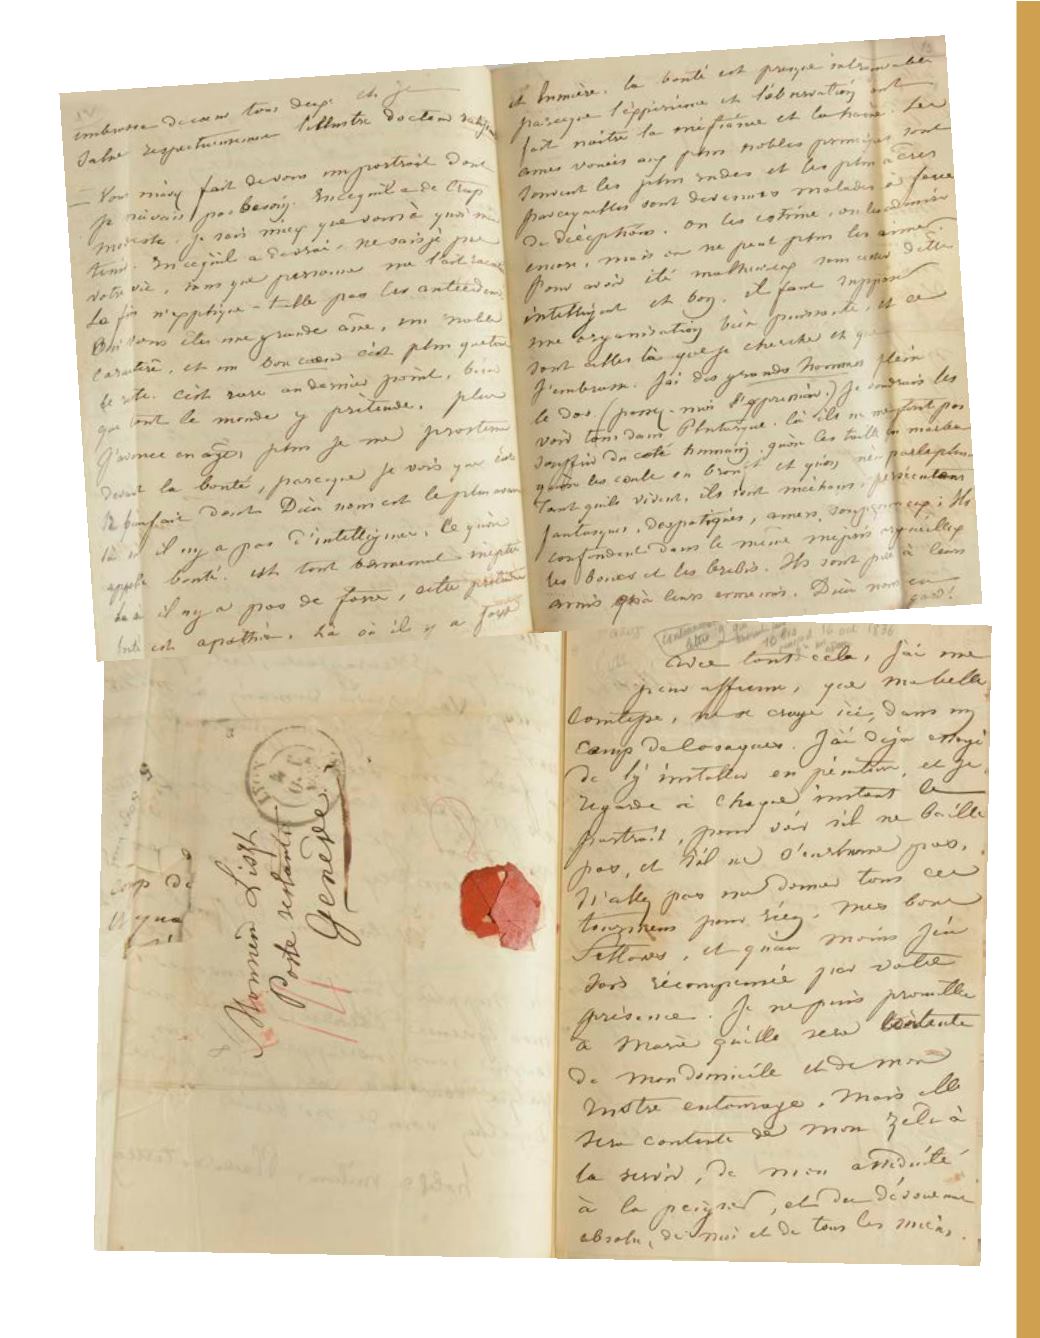 embrasse de coeur tous deux. et je
salue respectueusement l'illustre docteur
— Vous m'avez fait de vous un portrait dont
je n'avais pas besoin. En ce qu'il a de trop
modeste, je sais mieux que vous à quoi m'en
tenir. En ce qu'il a de vrai, ne sais-je pas
votre vie, sans que personne me l'ait racontée
La fin n'explique-t-elle pas les antécédens
Oui vous êtes une grande âme, un noble
caractère, et un bon coeur c'est plus que tout
le reste. c'est rare au dernier point, bien
que tout le monde y prétende. plus
j'avance en âge, plus je me prosterne
devant la bonté, parce que je vois que c'est
le bienfait dont Dieu nous est le plus avare
là où il n'y a pas d'intelligence, ce qu'on
appelle bonté est tout bonnement ineptie
là où il n'y a pas de force, cette prétendue
bonté est apathie. Là où il y a force
et lumière. la bonté est presque introuvable
parceque l'expérience et l'observation ont
fait naître la méfiance et la haine. Les
ames vouées aux plus nobles principes sont
souvent les plus rudes et les plus acres
parcequ'elles sont devenues malades à force
de déceptions. on les estime, on les admire
encore, mais on ne peut plus les aimer.
Pour avoir été malheureux sans cesser d'être
intelligent et bon, il faut supposer
une organisation bien puissante, et ce
sont celles là que je cherche et que
j'embrasse. J'ai des grands hommes plein
le dos (passez-moi l'expression.) Je voudrais les
voir tous dans Plutarque. là ils ne me font pas
souffrir du coté humain. qu'on les taille en marbre
qu'on les coule en bronze et qu'on n'en parle plus.
Tant qu'ils vivent, ils sont méchans, persécutans
fantasques, despotiques, amers, soupçonneux; Ils
confondent dans le même mépris orgueilleux
les boucs et les brebis. Ils sont pires à leurs
amis qu'à leurs ennemis. Dieu nous en
gard!
16 oct 1836
Avec tout cela, j'ai une
peur affreuse, que ma belle
comtesse, ne se croye ici, dans un
camp de Cosaques. J'ai déjà essayé
de l'y installer en peinture, et je
regarde à chaque instant le
portrait, pour voir s'il ne baille
pas, et s'il ne s'enrhume pas.
N'allez pas me donner tous ces
tourmens pour rien, mes bons
Fellows, et qu'au moins j'en
sois récompensée par votre
présence. Je ne puis promettre
à Marie qu'elle sera contente
de mon domicile et de mon
rustre entourage. Mais elle
sera contente de mon zèle à
la servir, de mon assiduité
à la peigner, et du dévouement
absolu, de moi et de tous les miens.
LYON
Monsieur Liszt
Poste restante
Genève